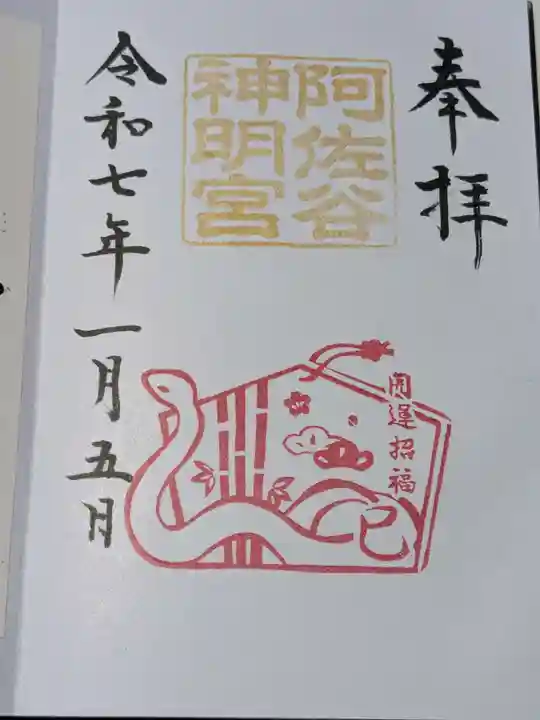 奉拝
阿佐谷
神明宮
開運招福
巳
令和七年一月五日